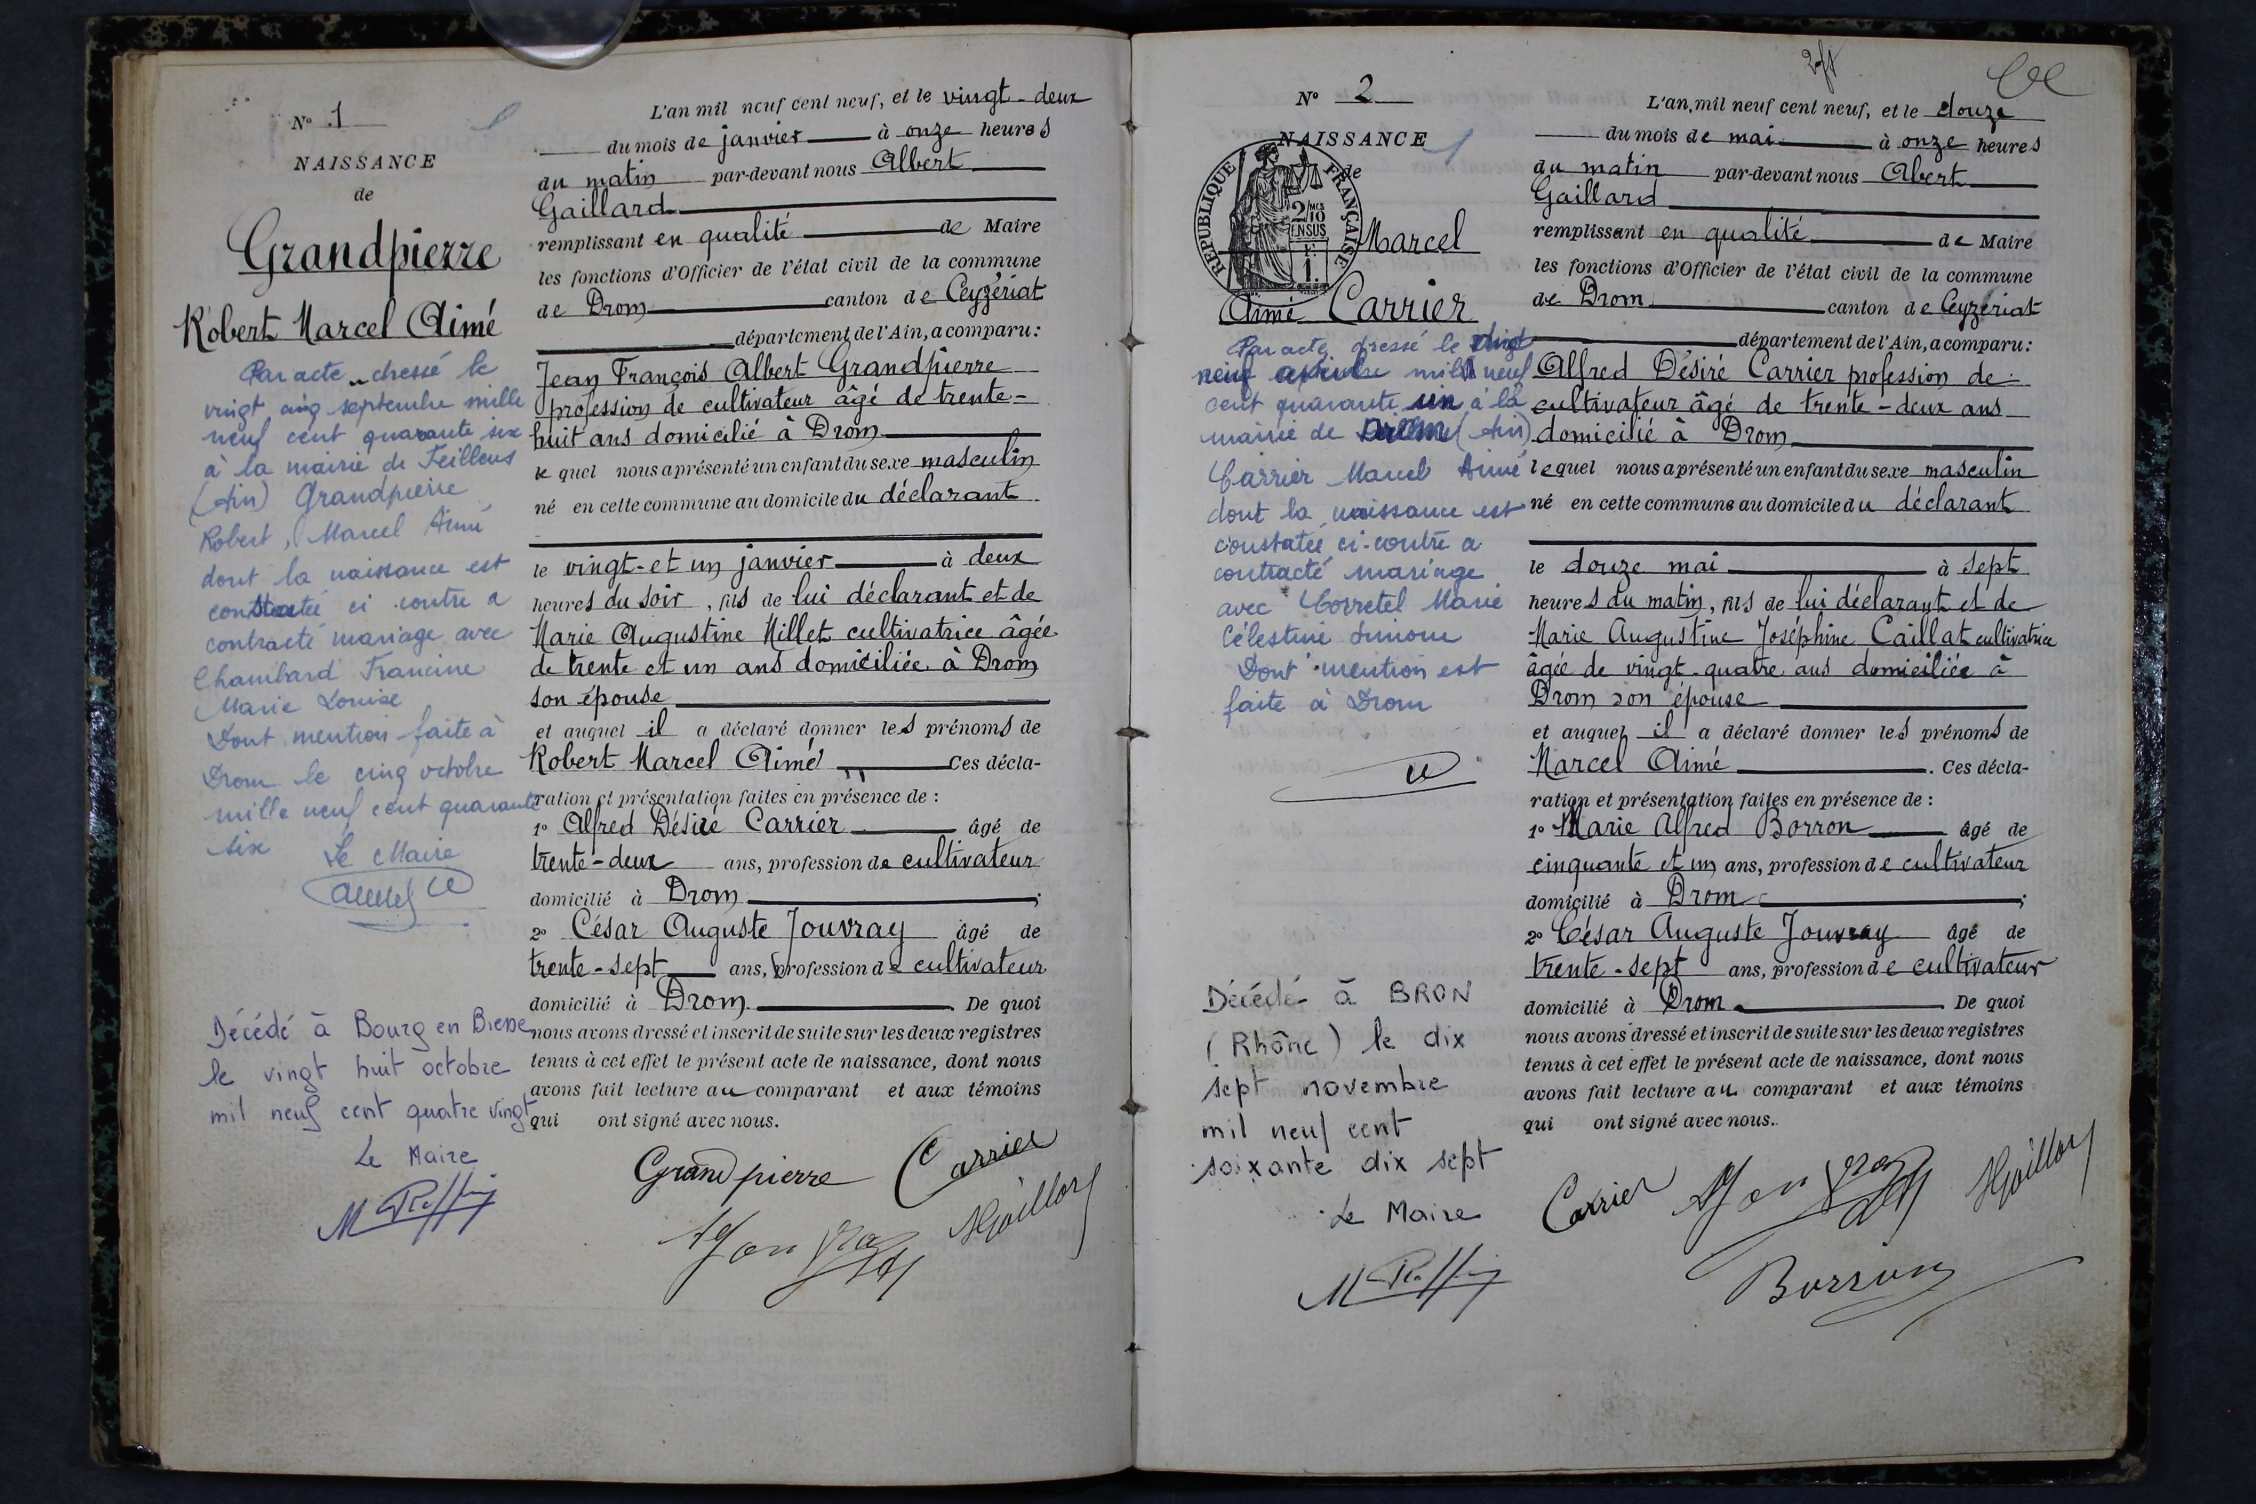 N° 1
NAISSANCE
de
Grandpierre
Robert Marcel Aimé
Par acte dressé le
vingt cinq septembre mille
neuf cent quarante six
à la mairie de Feillens
(Ain) Grandpierre
Robert, Marcel Aimé
dont la naissance est
constatée ci contre a
contracté mariage avec
Chambard Francine
Marie Louise
Dont mention faite à
Drom le cinq octobre
mille neuf cent quarante
six
Le Maire
Décédé à Bourg en Bresse
le vingt huit octobre
mil neuf cent quatre vingt
Le Maire
L'an mil neuf cent neuf, et le vingt-deux
du mois de janvier à onze heures
du matin par-devant nous Albert
Gaillard
remplissant en qualité de Maire
les fonctions d'Officier de l'état civil de la commune
de Drom canton de Ceyzériat
département de l'Ain, a comparu:
Jean François Albert Grandpierre
profession de cultivateur âgé de trente-
huit ans domicilié à Drom
le quel nous a présenté un enfant du sexe masculin
né en cette commune au domicile du déclarant
le vingt-et un janvier à deux
heures du soir, fils de lui déclarant et de
Marie Augustine Millet cultivatrice âgée
de trente et un ans domiciliée à Drom
son épouse
et auquel il a déclaré donner les prénoms de
Robert Marcel Aimé Ces décla-
ration et présentation faites en présence de :
1° Alfred Désiré Carrier âgé de
trente-deux ans, profession de cultivateur
domicilié à Drom ;
2° César Auguste Jouvray âgé de
trente-sept ans, profession de cultivateur
domicilié à Drom De quoi
nous avons dressé et inscrit de suite sur les deux registres
tenus à cet effet le présent acte de naissance, dont nous
avons fait lecture au comparant et aux témoins
qui ont signé avec nous.
Grandpierre Carrier
Jouvray AGaillard
N° 2
NAISSANCE
de
REPUBLIQUE FRANÇAISE
2/10 EN SUS
Marcel
Aimé Carrier
Par acte dressé le vingt
neuf mil neuf
cent quarante un à la
mairie de Drom (Ain)
Carrier Marcel Aimé
dont la naissance est
constatée ci-contre a
contracté mariage
avec Corretel Marie
Célestine Simone
Dont mention est
faite à Drom
Décédé à BRON
(Rhône) le dix
sept novembre
mil neuf cent
soixante dix sept
Le Maire
L'an mil neuf cent neuf, et le douze
du mois de mai à onze heures
du matin par-devant nous Albert
Gaillard
remplissant en qualité de Maire
les fonctions d'Officier de l'état civil de la commune
de Drom canton de Ceyzériat
département de l'Ain, a comparu:
Alfred Désiré Carrier profession de
cultivateur âgé de trente-deux ans
domicilié à Drom
lequel nous a présenté un enfant du sexe masculin
né en cette commune au domicile du déclarant
le douze mai à sept
heures du matin, fils de lui déclarant et de
Marie Augustine Joséphine Caillat cultivatrice
âgée de vingt-quatre ans domiciliée à
Drom son épouse
et auquel il a déclaré donner les prénoms de
Marcel Aimé . Ces décla-
ration et présentation faites en présence de :
1° Marie Alfred Borron âgé de
cinquante et un ans, profession de cultivateur
domicilié à Drom ;
2° César Auguste Jouvray âgé de
trente-sept ans, profession de cultivateur
domicilié à Drom De quoi
nous avons dressé et inscrit de suite sur les deux registres
tenus à cet effet le présent acte de naissance, dont nous
avons fait lecture au comparant et aux témoins
qui ont signé avec nous.
Carrier Jouvray AGaillard
Borron